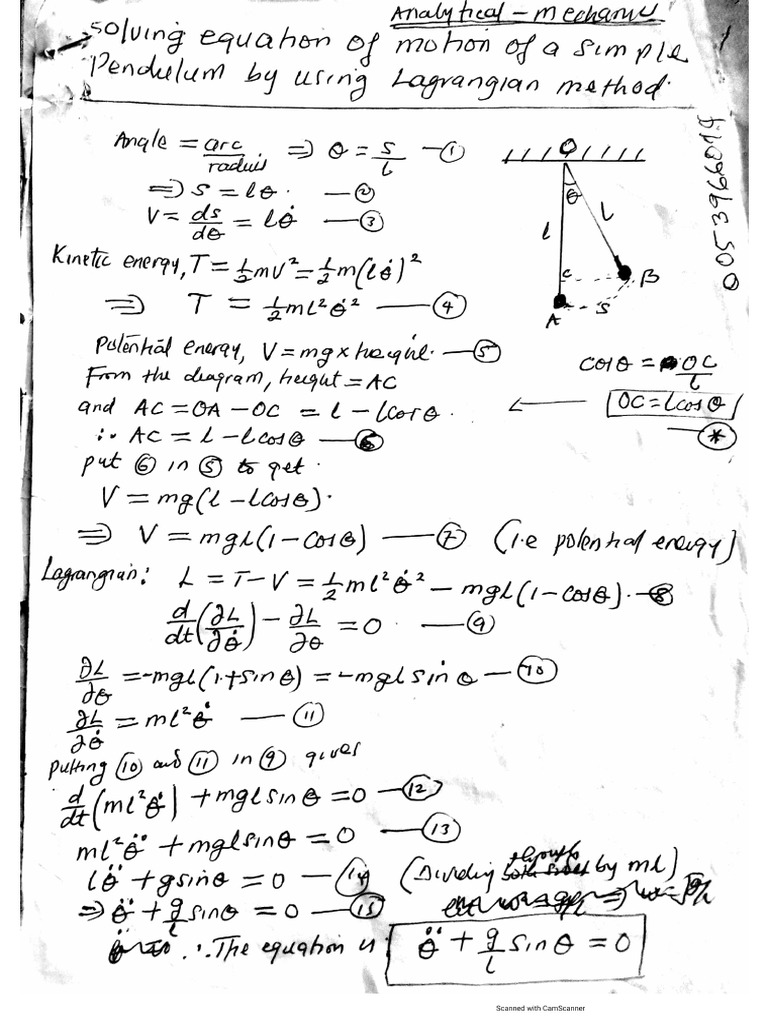 Analytical - mechanics
1
Solving equation of motion of a simple
Pendulum by using Lagrangian method.
0053966079
Angle = arc/radius ⇒ θ = s/l — ①
⇒ s = lθ. — ②
V = ds/dθ = lθ̇ — ③
O
θ
l
l
C
B
A
S
Kinetic energy, T = ½mv² = ½m(lθ̇)²
⇒ T = ½ml²θ̇² — ④
Potential energy, V = mg × height. — ⑤
cosθ = OC/l
From the diagram, height = AC
and AC = OA - OC = l - lcosθ. ← OC = lcosθ
∴ AC = l - lcosθ — ⑥
(*)
put ⑥ in ⑤ to get.
V = mg(l - lcosθ).
⇒ V = mgl(1 - cosθ) — ⑦ (i.e potential energy)
Lagrangian: L = T - V = ½ml²θ̇² - mgl(1 - cosθ). — ⑧
d/dt(∂L/∂θ̇) - ∂L/∂θ = 0. — ⑨
∂L/∂θ = -mgl(1+sinθ) = -mgl sinθ — ⑩
∂L/∂θ̇ = ml²θ̇ — ⑪
putting ⑩ and ⑪ in ⑨ gives
d/dt(ml²θ̇) + mgl sinθ = 0 — ⑫
ml²θ̈ + mgl sinθ = 0 — ⑬
lθ̈ + g sinθ = 0 — ⑭ (Dividing through by ml)
⇒ θ̈ + g/l sinθ = 0 — ⑮
∴ The equation is θ̈ + g/l sinθ = 0
Scanned with CamScanner